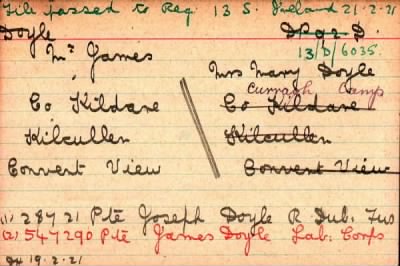 File passed to Reg 13 S. Ireland 21-2-21
Doyle
13/D/6035.
Mr James
Mrs Mary Doyle
Curragh Camp
Co Kildare
Co Kildare
Kilcullen
Kilcullen
Convent View
Convent View
(1) 28721 Pte Joseph Doyle R. Dub. Fus
(2) 547290 Pte James Doyle Lab. Corps
19.2.21